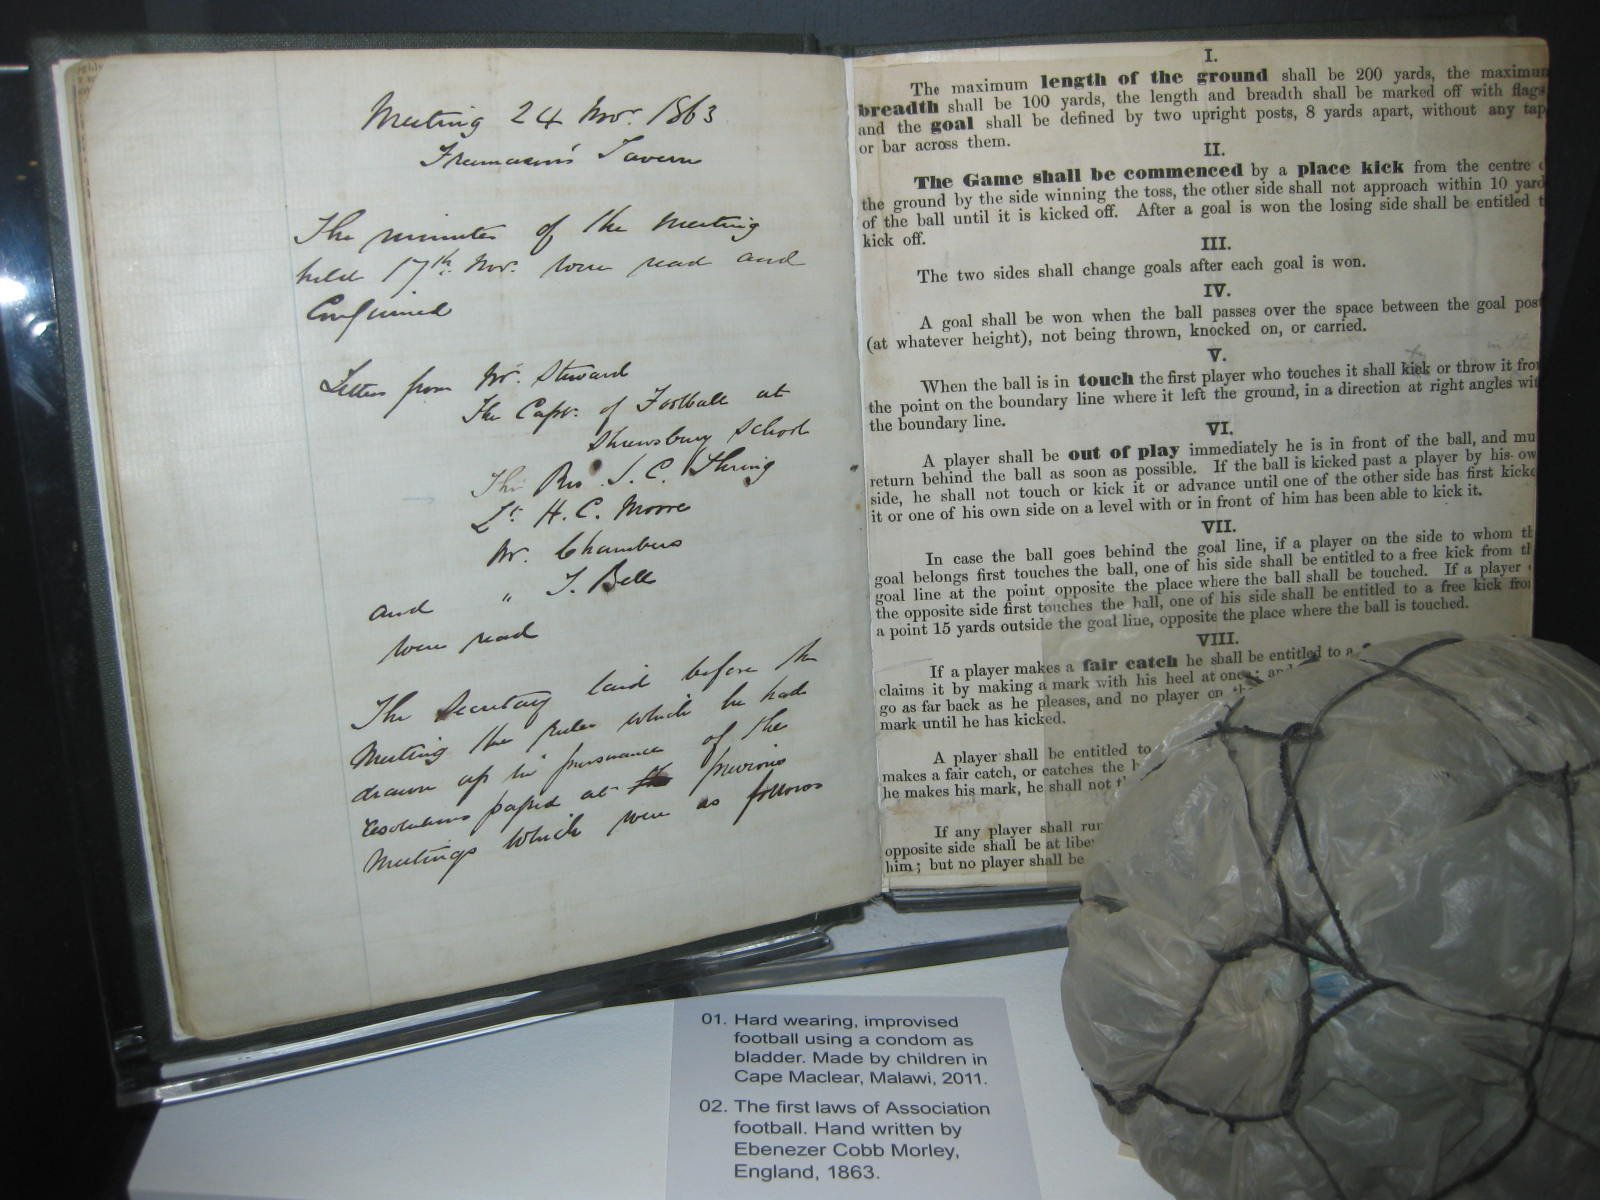 Meeting 24 Nov. 1863
Freemason's Tavern
The minutes of the Meeting
held 17th. Nov. were read and
Confirmed
Letters from Mr. Steward
The Capt. of Football at
Shrewsbury School
The Rev J. C. Thring
Lt. H. C. Moore
Mr. Chambers
and " J. Bell
were read
The Secretary laid before the
Meeting the rules which he had
drawn up in pursuance of the
resolutions passed at previous
Meetings which were as follows
I.
The maximum length of the ground shall be 200 yards, the maximum
breadth shall be 100 yards, the length and breadth shall be marked off with flags
and the goal shall be defined by two upright posts, 8 yards apart, without any tap
or bar across them.
II.
The Game shall be commenced by a place kick from the centre o
the ground by the side winning the toss, the other side shall not approach within 10 yard
of the ball until it is kicked off. After a goal is won the losing side shall be entitled t
kick off.
III.
The two sides shall change goals after each goal is won.
IV.
A goal shall be won when the ball passes over the space between the goal post
(at whatever height), not being thrown, knocked on, or carried.
V.
When the ball is in touch the first player who touches it shall kick or throw it from
the point on the boundary line where it left the ground, in a direction at right angles wit
the boundary line.
VI.
A player shall be out of play immediately he is in front of the ball, and mu
return behind the ball as soon as possible. If the ball is kicked past a player by his ow
side, he shall not touch or kick it or advance until one of the other side has first kicke
it or one of his own side on a level with or in front of him has been able to kick it.
VII.
In case the ball goes behind the goal line, if a player on the side to whom th
goal belongs first touches the ball, one of his side shall be entitled to a free kick from th
goal line at the point opposite the place where the ball shall be touched. If a player
the opposite side first touches the ball, one of his side shall be entitled to a free kick from
a point 15 yards outside the goal line, opposite the place where the ball is touched.
VIII.
If a player makes a fair catch he shall be entitled to a
claims it by making a mark with his heel at once; and
go as far back as he pleases, and no player on
mark until he has kicked.
A player shall be entitled to
makes a fair catch, or catches the b
he makes his mark, he shall not
If any player shall run
opposite side shall be at liber
him; but no player shall be
01. Hard wearing, improvised
football using a condom as
bladder. Made by children in
Cape Maclear, Malawi, 2011.
02. The first laws of Association
football. Hand written by
Ebenezer Cobb Morley,
England, 1863.